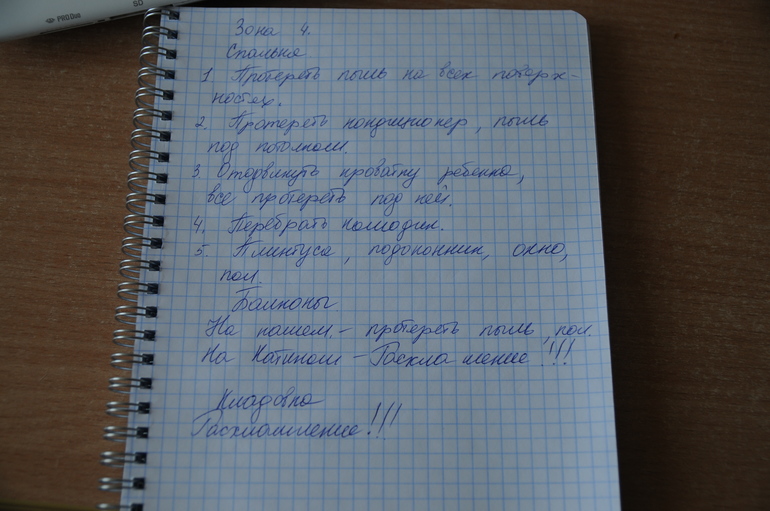 SD
PRODuo
Зона 4.
Спальня
1. Протереть пыль на всех поверх-
ностях.
2. Протереть кондиционер, пыль
под потолком.
3. Отодвинуть кроватку ребенка,
все протереть под ней.
4. Перебрать комодик.
5. Плинтуса, подоконник, окно,
пол.
Балконы.
На нашем - протереть пыль, пол.
На Катином - Расхламление!!!
Кладовка
Расхламление!!!